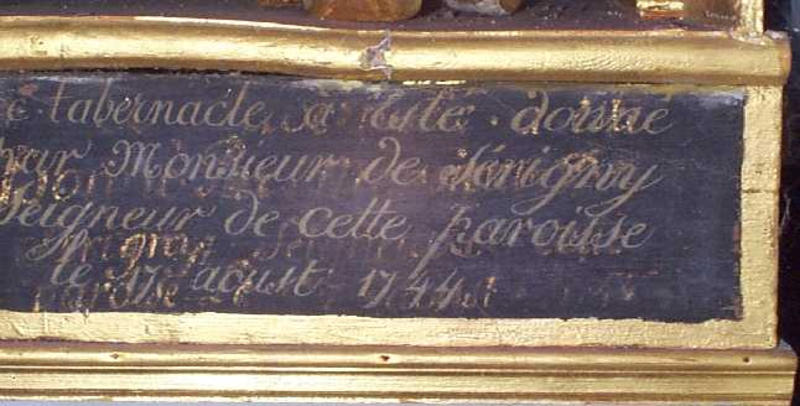 e tabernacle a Esté donné
par Monsieur de Sérigny
Seigneur de cette paroisse
le 17 aoust 1744